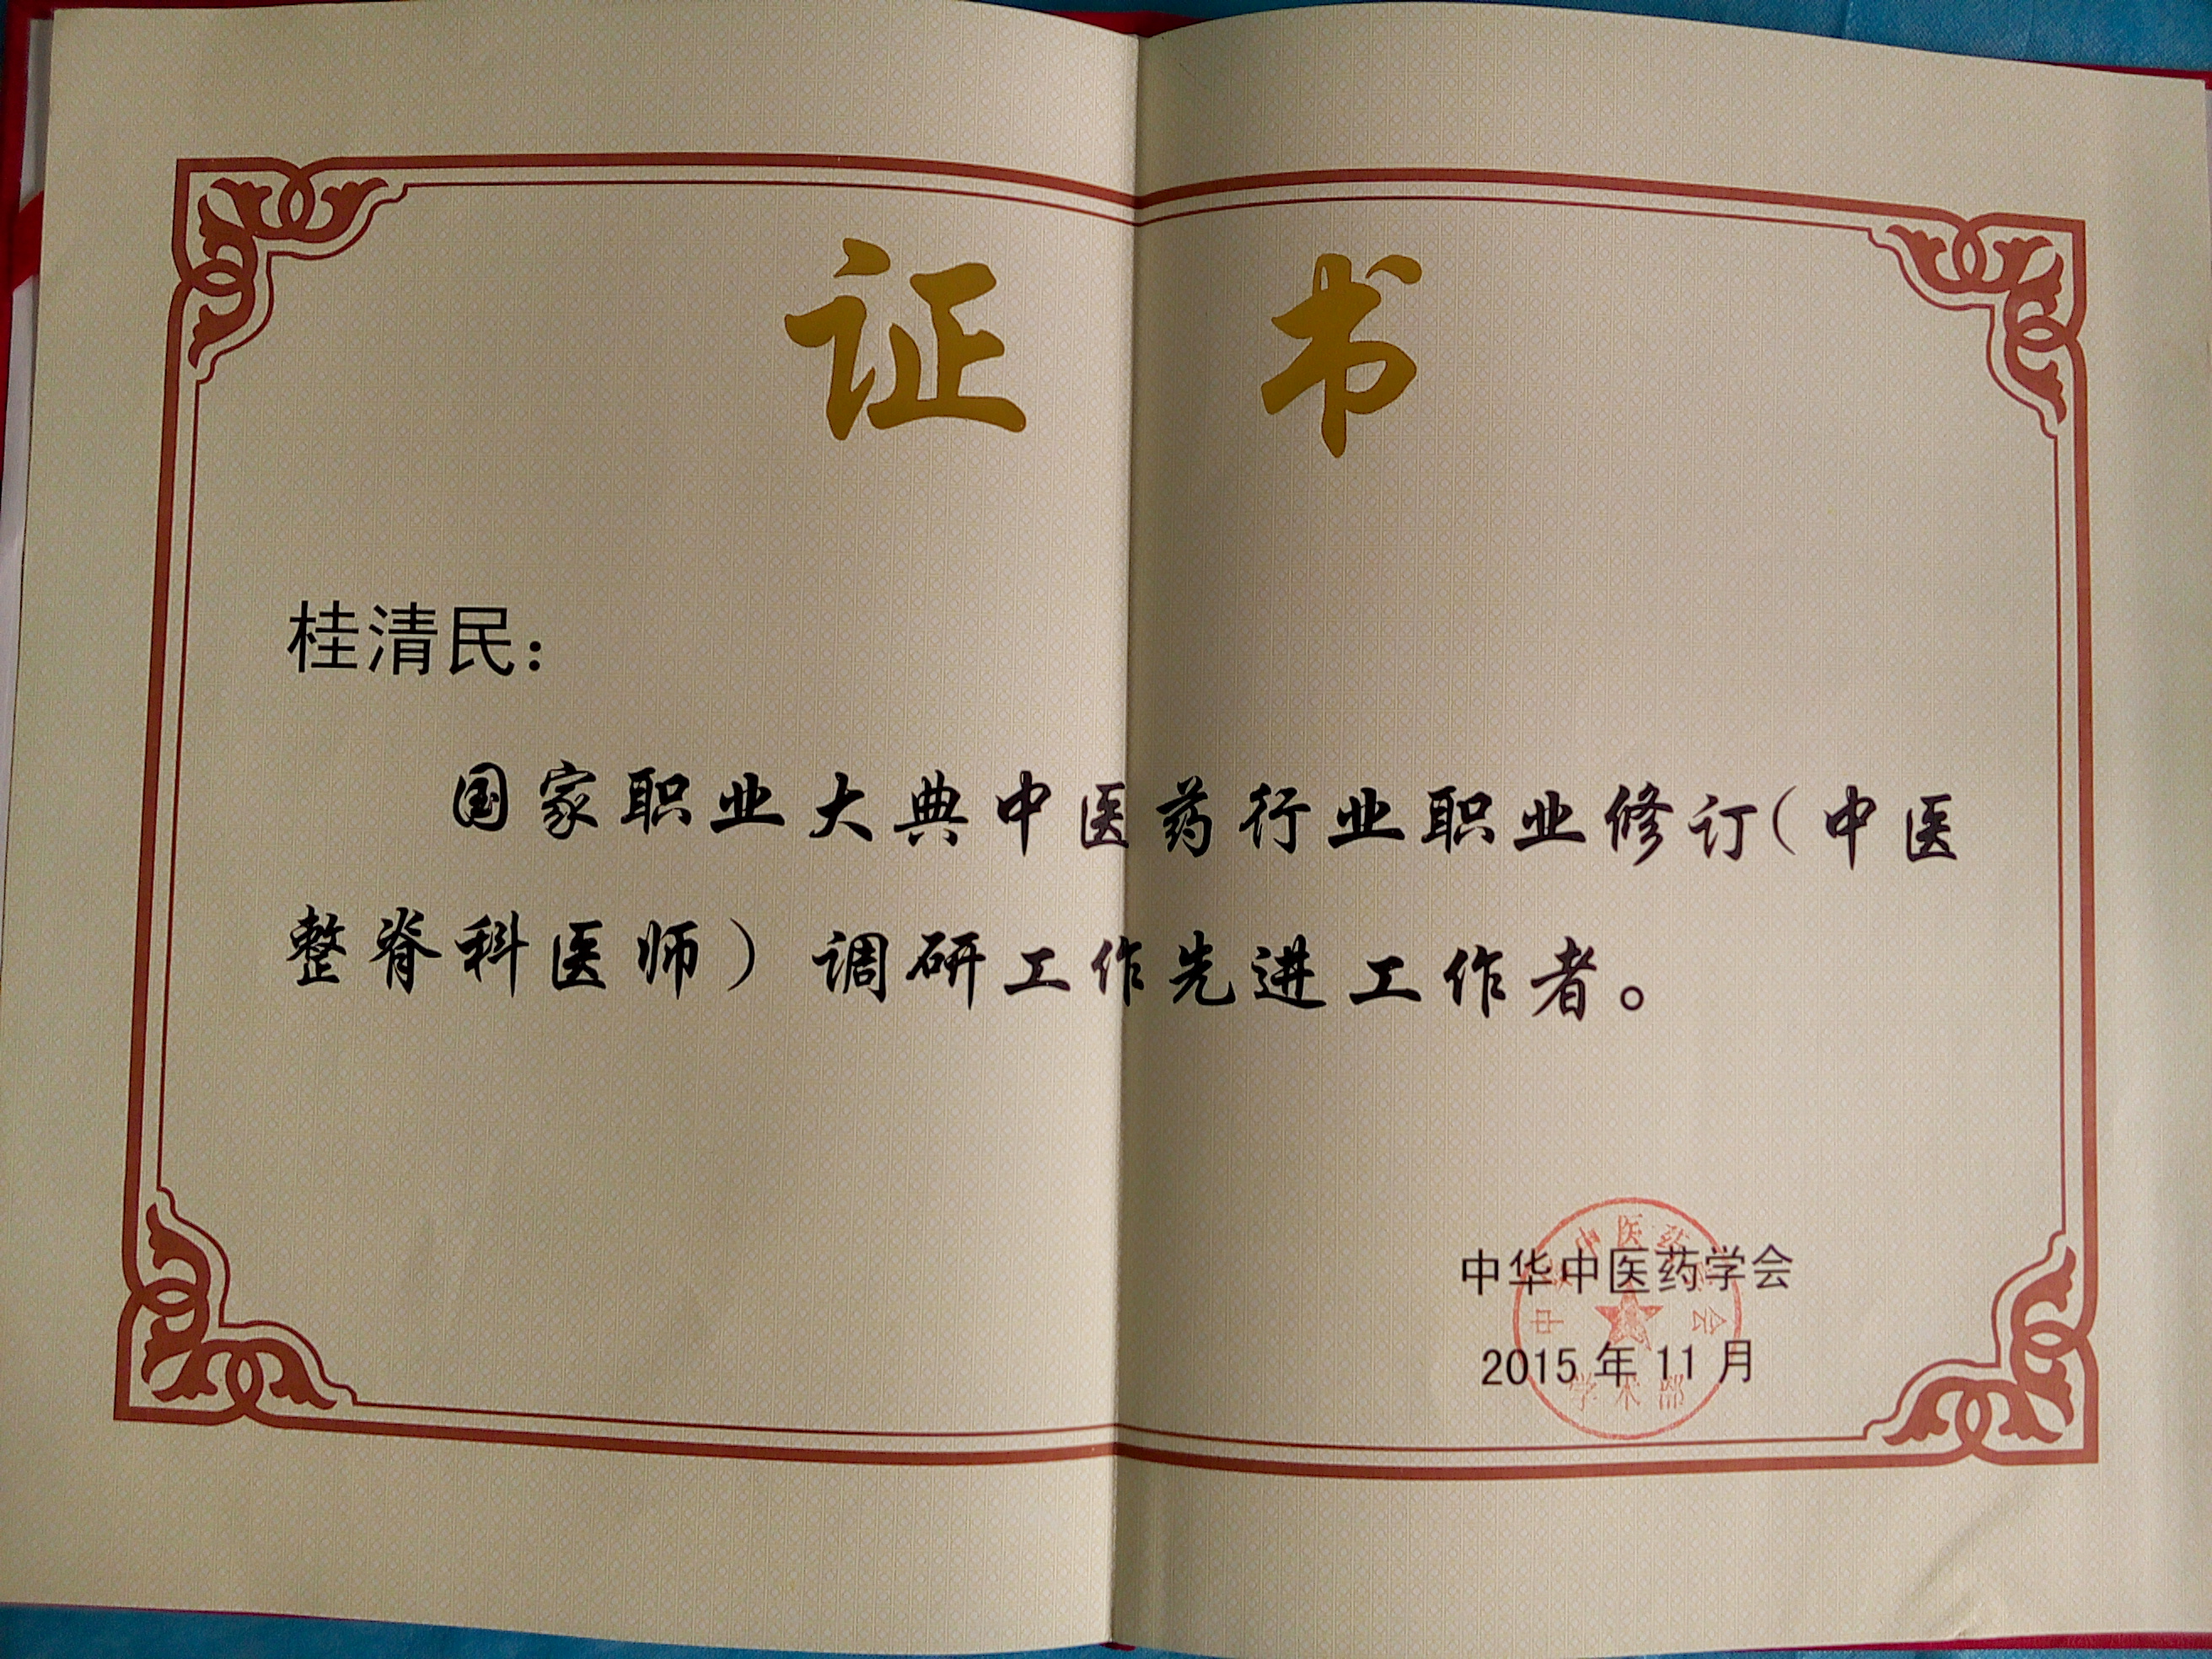 证书
桂清民：
国家职业大典中医药行业职业修订（中医
整脊科医师）调研工作先进工作者。
中华中医药学会
2015年11月
中华中医药学会
学术部